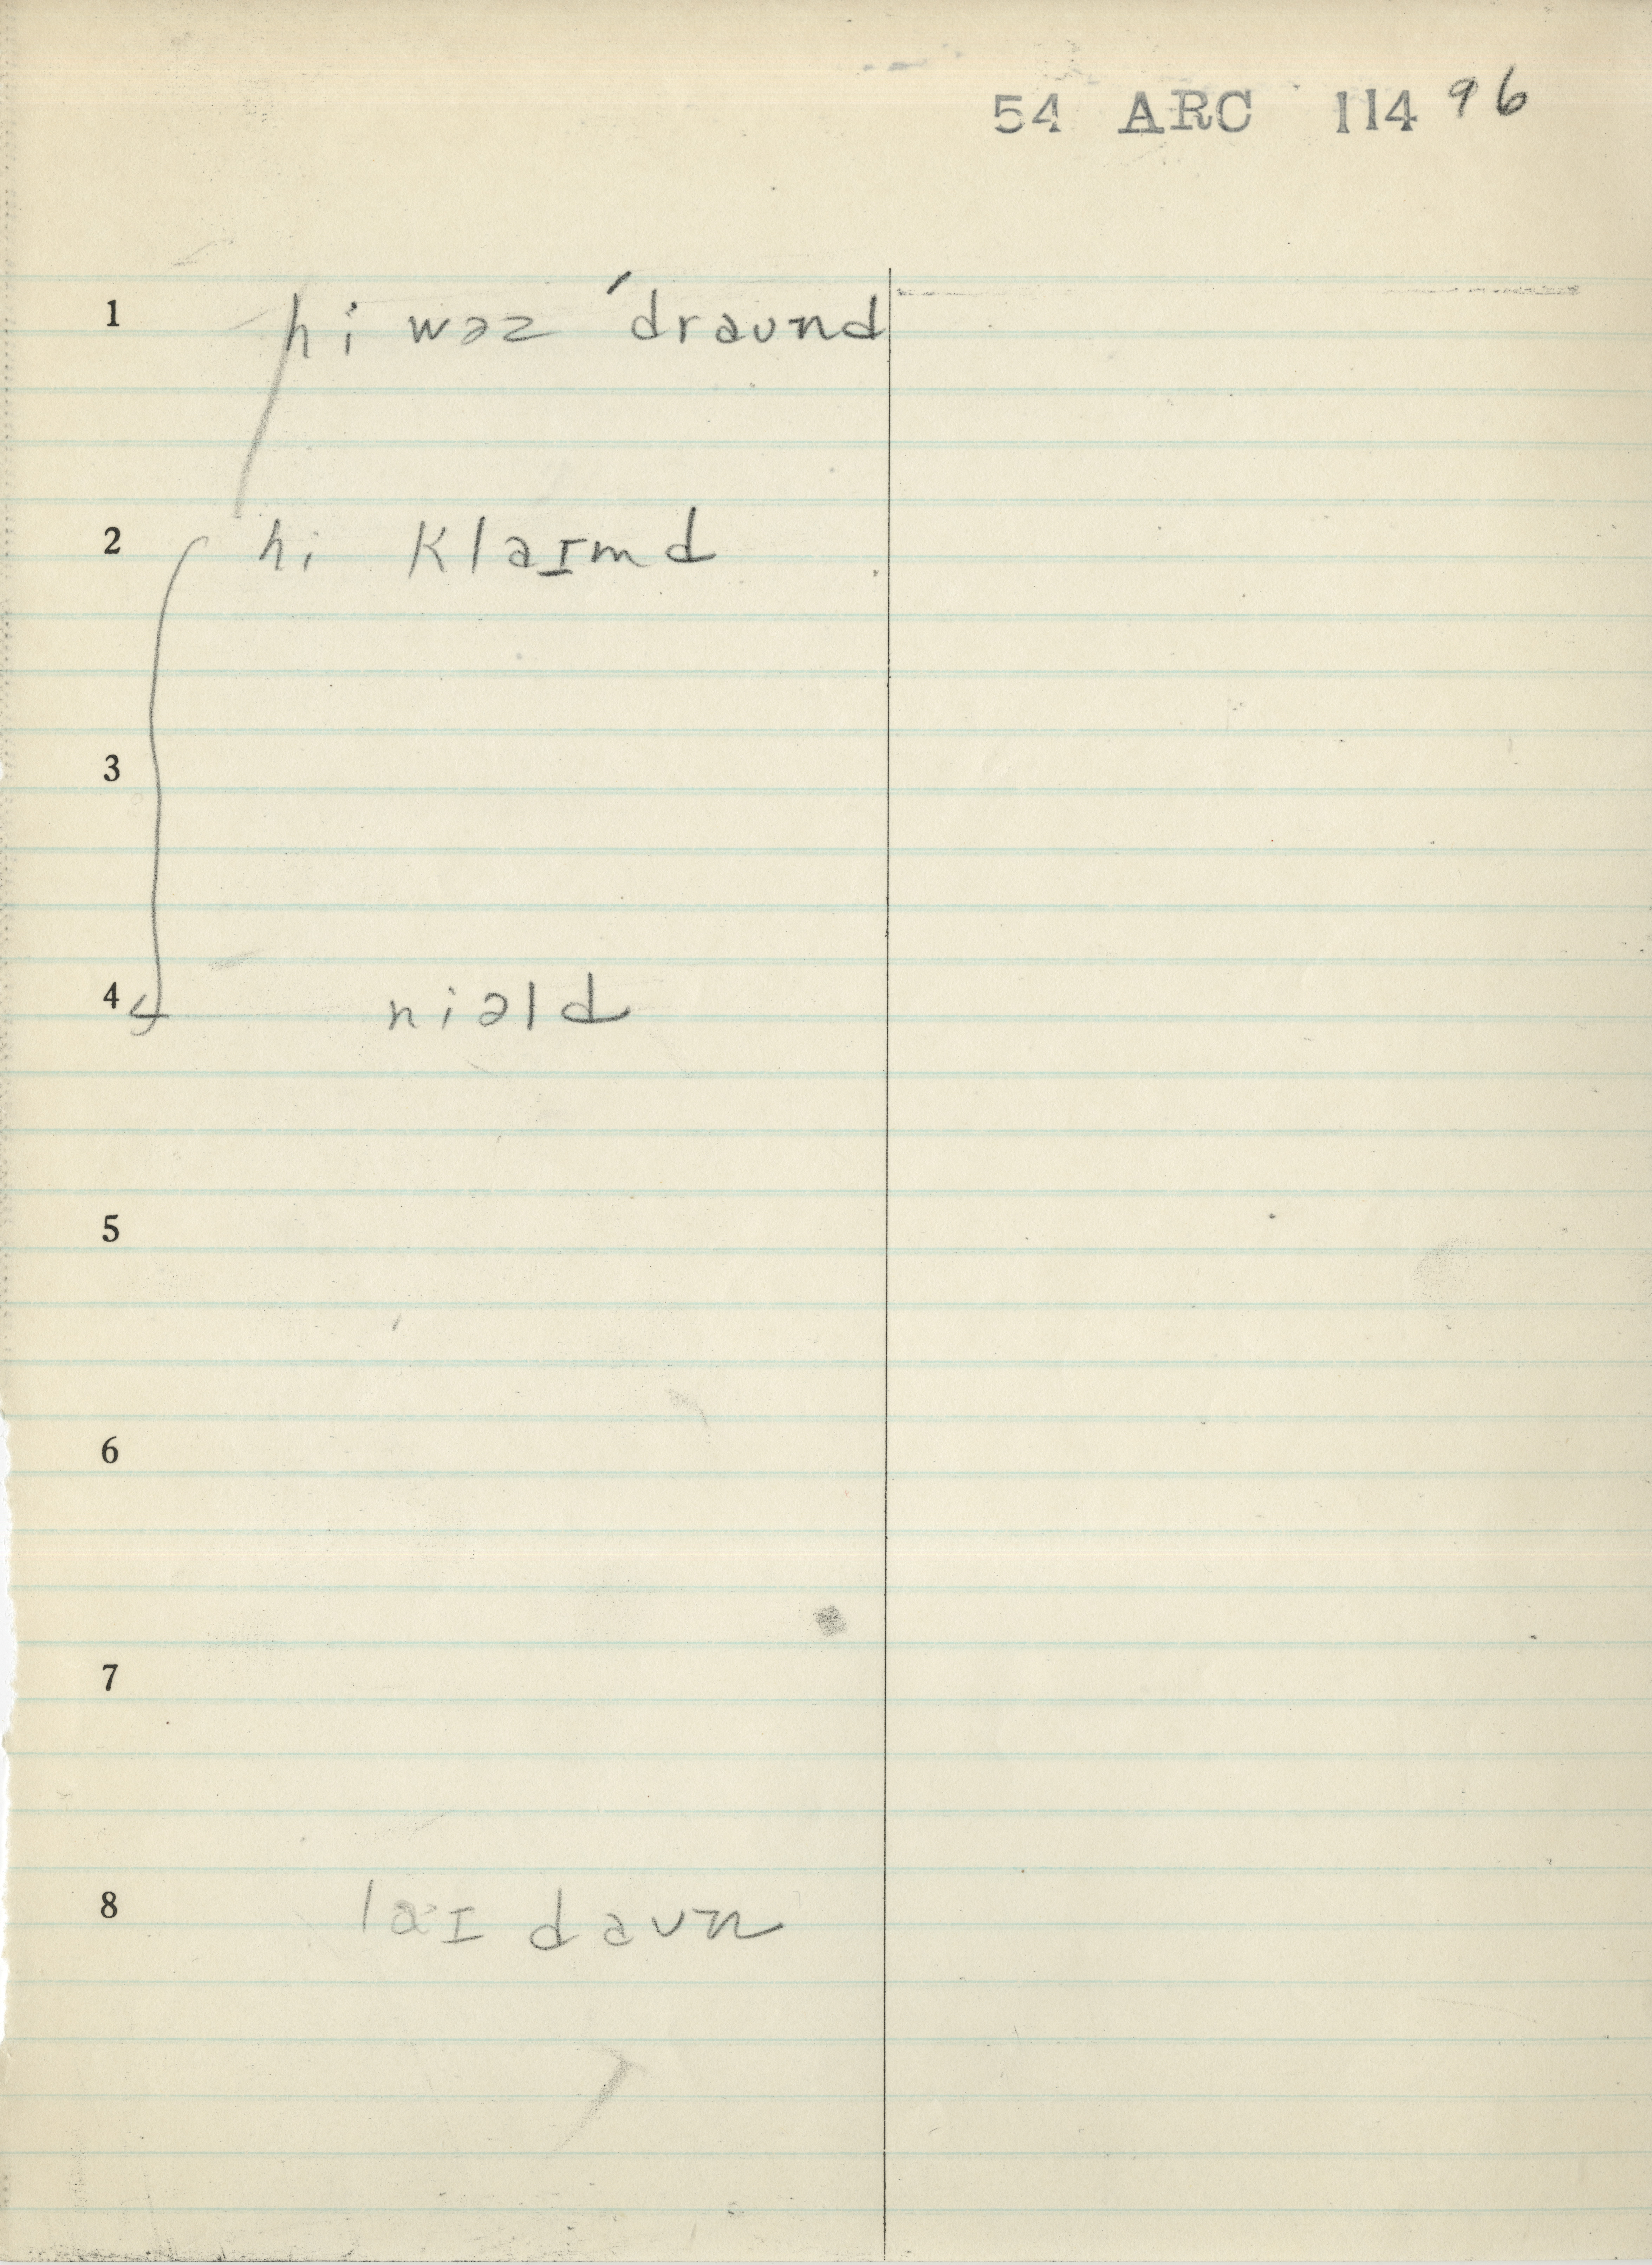 54 ARC 114 96
1 hi wəz ´draʊnd
2 hi klaɪmd
3
4 niəld
5
6
7
8 laɪ daʊn